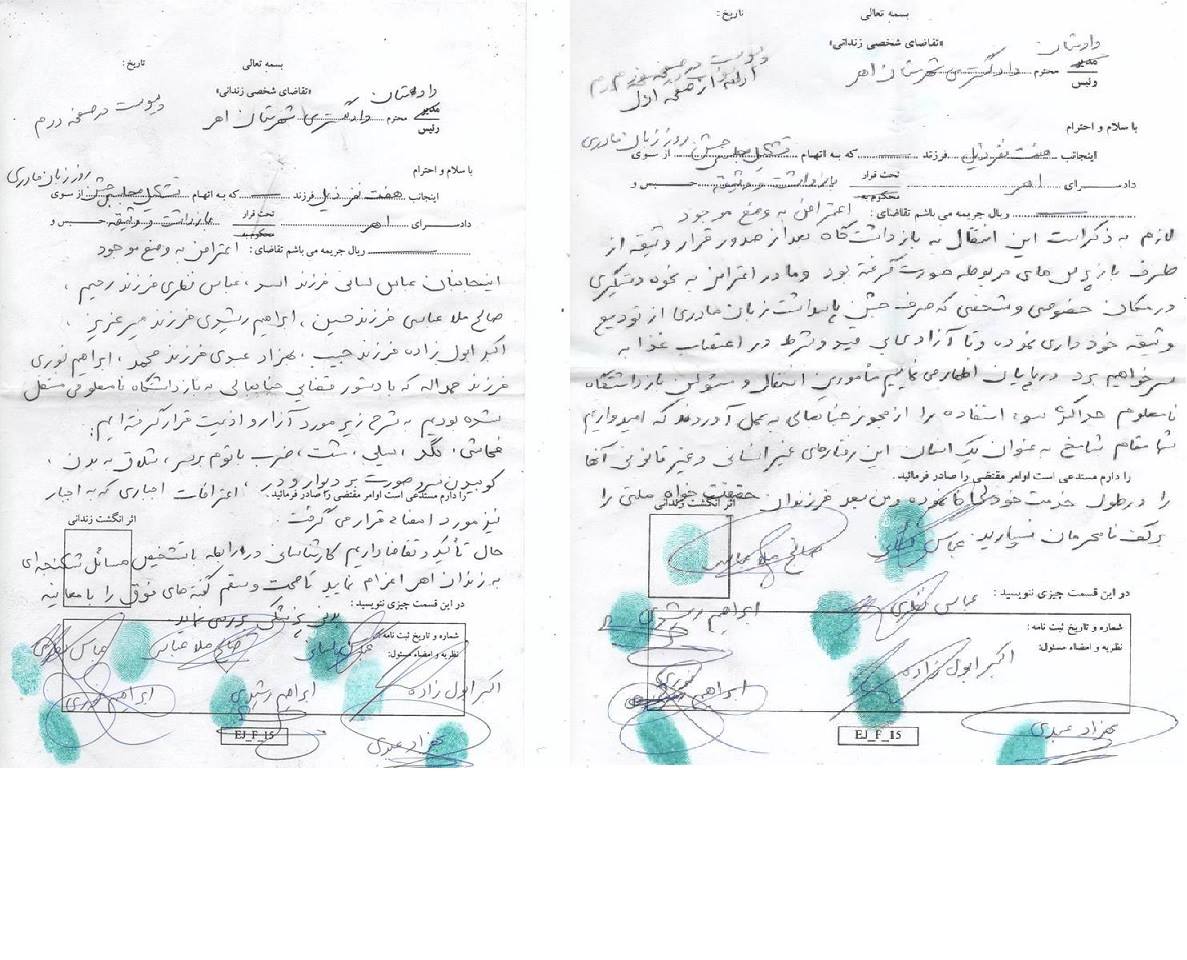 بسمه تعالی
تاریخ :
«تقاضای شخصی زندانی»
دادستان
مدیر
رئیس
محترم دادگستری شهرستان اهر
پیوست در صفحه دوم
با سلام و احترام
اینجانب هفت نفر ذیل فرزند — که به اتهام تشکیل مجلس جشن روز زبان مادری از سوی
دادسرای اهر تحت قرار محکوم به بازداشت و وثیقه حبس و
ریال جریمه می باشم تقاضای : اعتراض به وضع موجود
اینجانبان عباس لسانی فرزند اسد ، عباس نظری فرزند رحیم ،
صالح ملا عباسی فرزند حسین ، ابراهیم رشیدی فرزند میر عزیز ،
اکبر ابول زاده فرزند حبیب ، بهزاد عبدی فرزند محمد ، ابراهیم نوری
فرزند حمداله که با دستور قضایی جنابعالی به بازداشگاه نامعلومی منتقل
شده بودیم به شرح زیر مورد آزار و اذیت قرار گرفته ایم:
فحاشی ، لگد ، سیلی ، مشت ، ضرب باتوم بر سر ، شلاق به بدن ،
کوبیدن سر و صورت بر دیوار و در ، اعترافات اجباری که به اجبار
را دارم مستدعی است اوامر مقتضی را صادر فرمائید .
نیز مورد امضاء قرار می گرفت .
اثر انگشت زندانی
حال تأکید و تقاضا داریم کارشناسی در رابطه با تشخیص مسائل شکنجه ای
به زندان اهر اعزام نماید تا صحت و سقم گفته های فوق را با معاینه
در این قسمت چیزی ننویسید :
پزشکی بررسی نماید.
شماره و تاریخ ثبت نامه :
نظریه و امضاء مسئول:
عباس نظری صالح ملا عباسی عباس لسانی
ابراهیم نوری ابراهیم رشیدی اکبر ابول زاده
بهزاد عبدی
EJ_F_15
بسمه تعالی
تاریخ :
«تقاضای شخصی زندانی»
دادستان
مدیر
رئیس
محترم دادگستری شهرستان اهر
پیوست در صفحه دوم
ادامه از صفحه اول
با سلام و احترام
اینجانب هفت نفر ذیل فرزند — که به اتهام تشکیل مجلس جشن روز زبان مادری از سوی
دادسرای اهر تحت قرار محکوم به بازداشت و وثیقه حبس و
وریال جریمه می باشم تقاضای : اعتراض به وضع موجود
لازم به ذکر است این انتقال به بازداشتگاه بعد از صدور قرار وثیقه از
طرف بازپرس های مربوطه صورت گرفته بود و ما در اعتراض به نحوه دستگیری
در مکان خصوصی و شخصی که صرف جشن پاسداشت زبان مادری از تودیع
وثیقه خود داری نموده و تا آزادی بی قید و شرط در اعتصاب غذا به
سر خواهیم برد . در پایان اظهار می نماییم مأمورین انتقال و مسئولین بازداشتگاه
نامعلوم حداکثر سوء استفاده را از مجوز جنابعالی به عمل آوردند که امیدواریم
شما مقام شامخ به عنوان یک انسان این رفتارهای غیر انسانی و غیر قانونی آنها
را دارم مستدعی است اوامر مقتضی را صادر فرمائید .
را در طول خدمت خود لحاظ نموده و من بعد فرزندان حقیقت خواه ملتی را
اثر انگشت زندانی
بر کف نامحرمان نسپارید .
عباس لسانی صالح ملا عباسی
در این قسمت چیزی ننویسید :
عباس نظری ابراهیم رشیدی
شماره و تاریخ ثبت نامه :
نظریه و امضاء مسئول:
اکبر ابول زاده
ابراهیم نوری
بهزاد عبدی
EJ_F_15